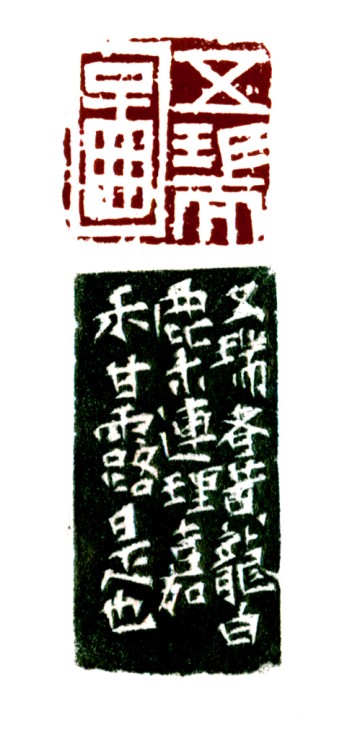 五瑞
圖
五瑞者黃龍白
鹿木連理嘉
禾甘露是也